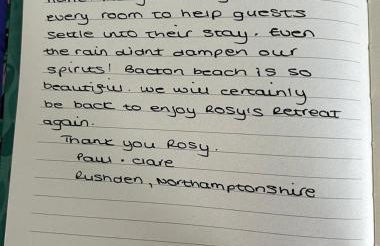 every room to help guests
settle into their stay. Even
the rain didnt dampen our
spirits! Bacton beach is so
beautiful. we will certainly
be back to enjoy Rosy's Retreat
again.
Thank you Rosy.
Paul . Clare
Rushden, Northamptonshire